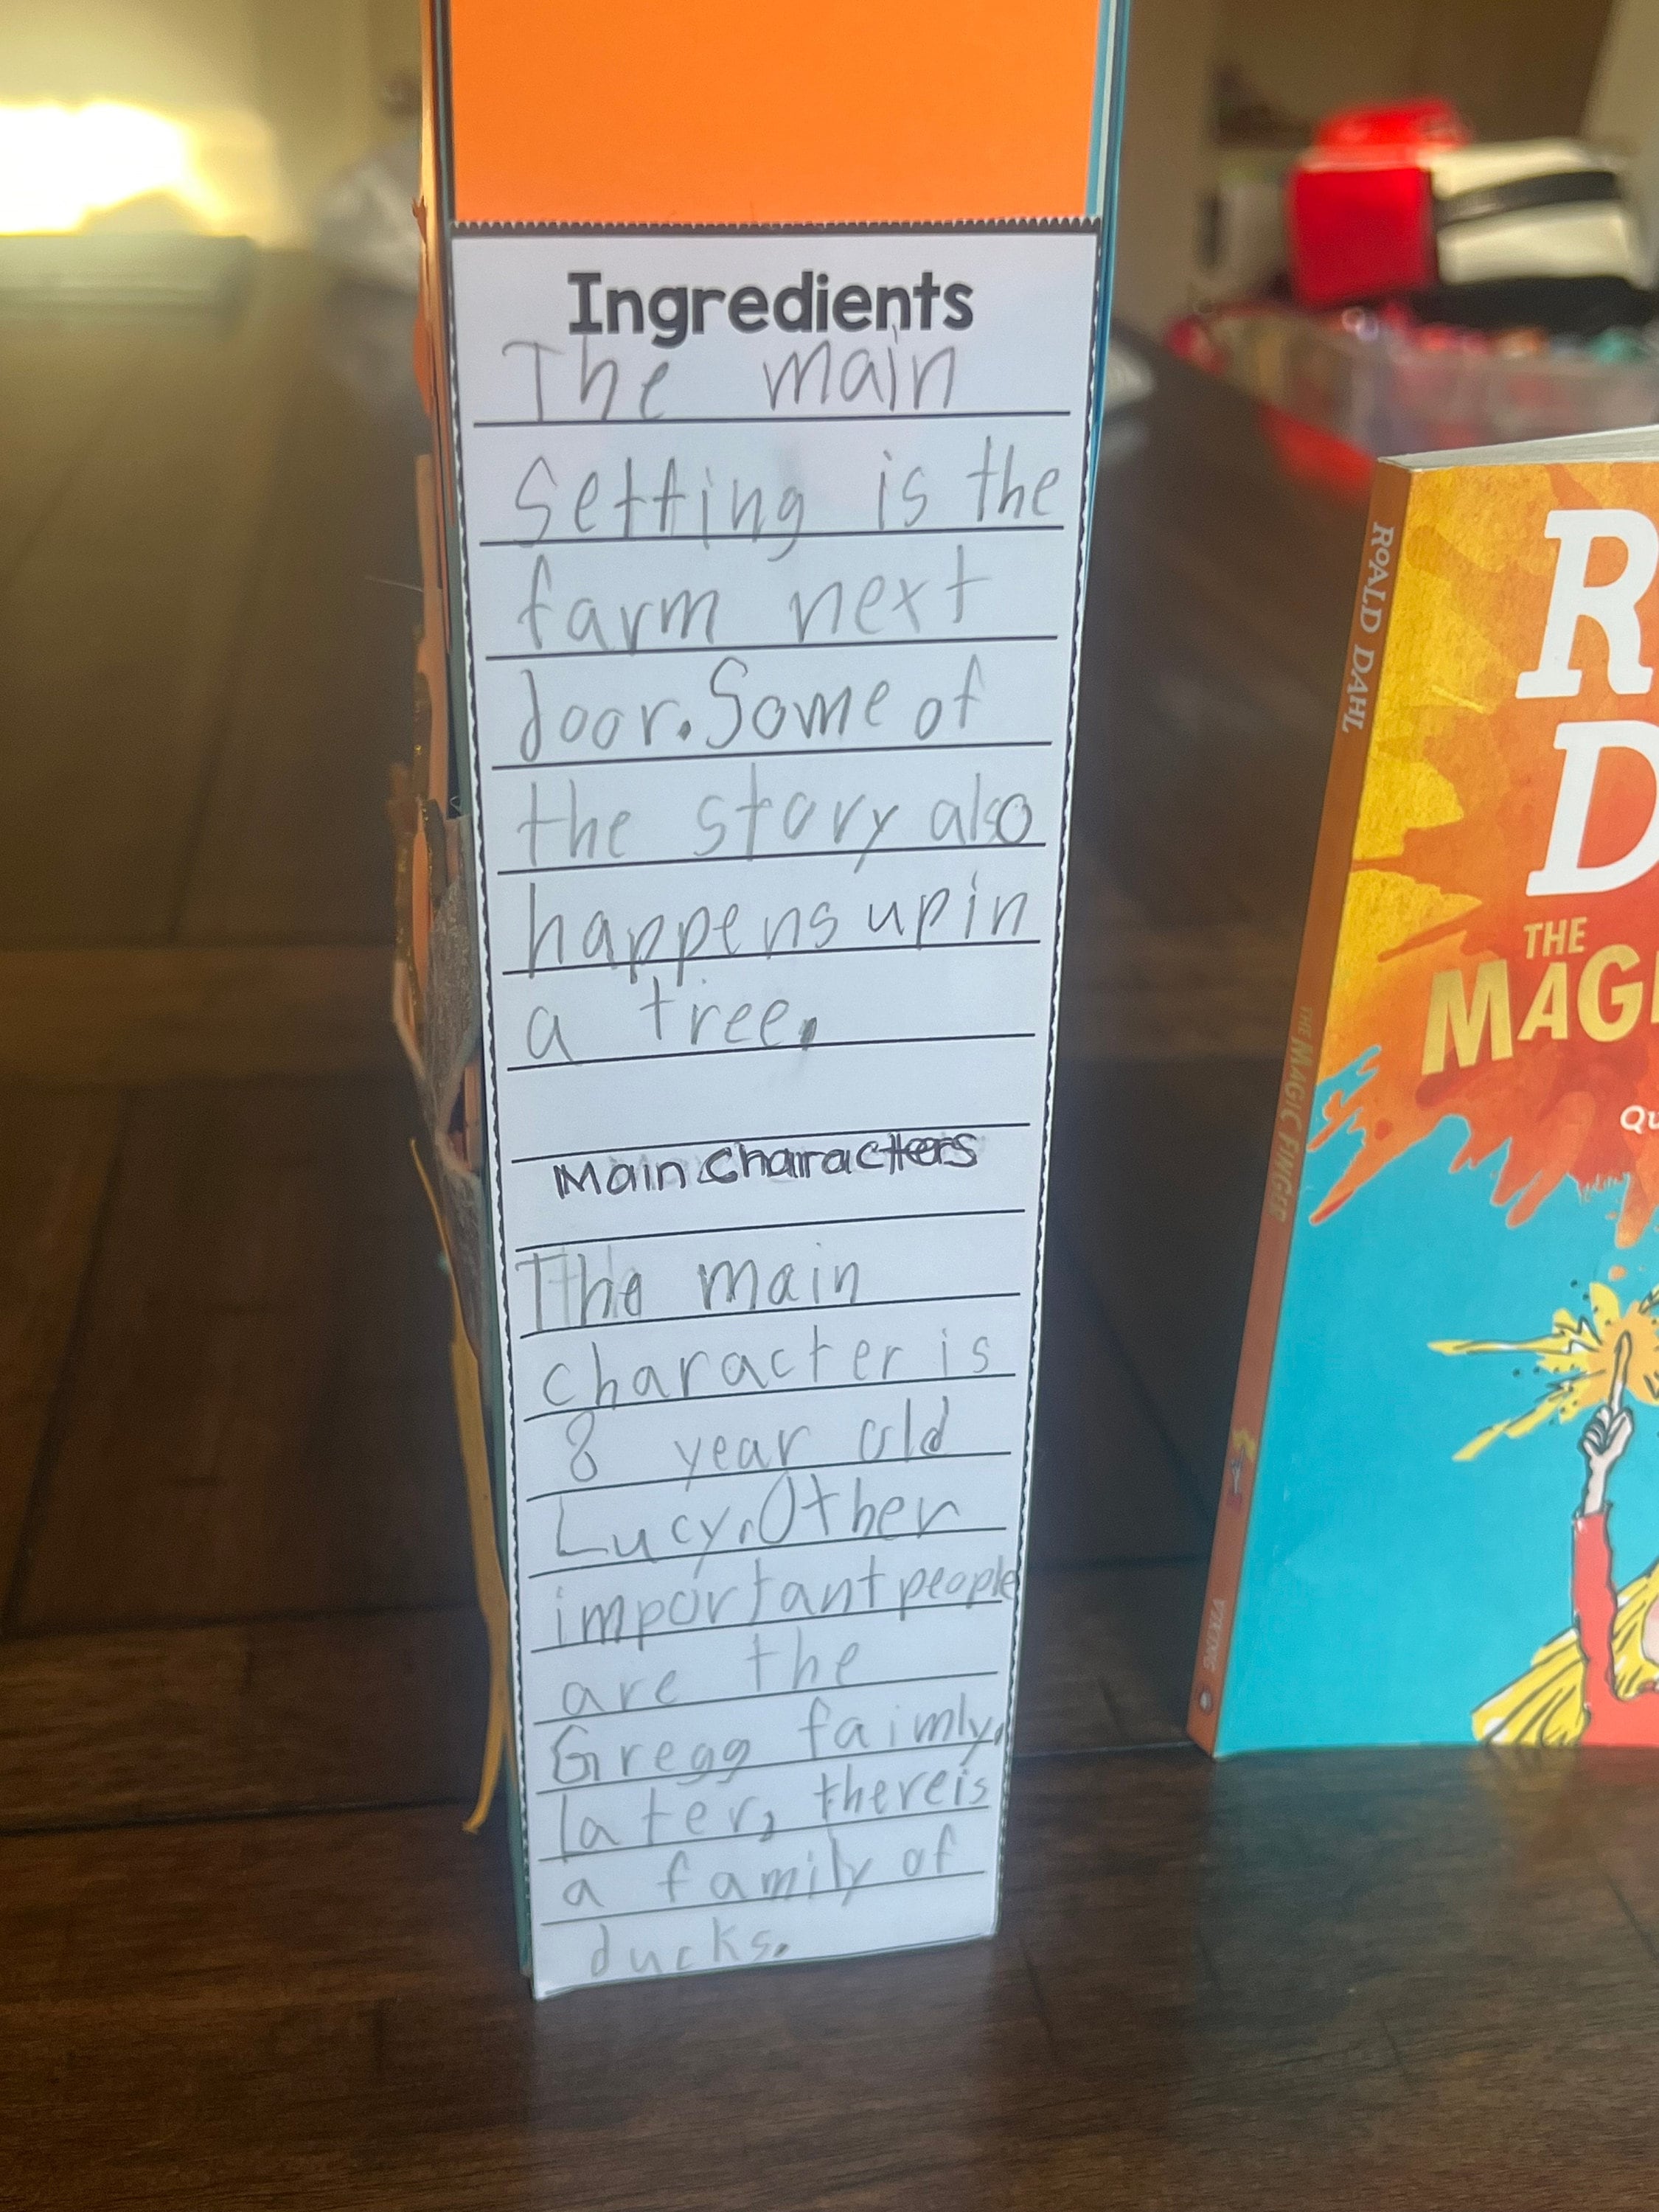 Ingredients
The main
Setting is the
farm next
door. Some of
the story also
happens up in
a tree.
Main Characters
The main
character is
8 year old
Lucy. Other
important people
are the
Gregg faimly.
later, there is
a family of
ducks.
ROALD DAHL
THE MAGIC FINGER
R
D
THE
MAGI
Qu